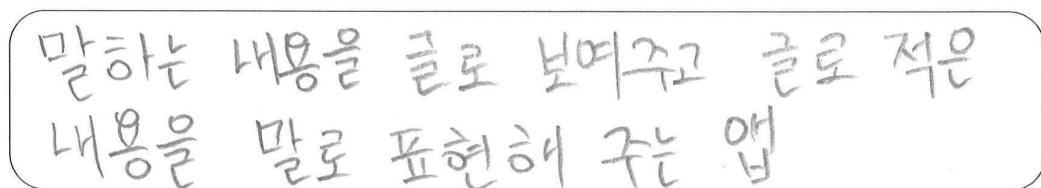 말하는 내용을 글로 보여주고 글로 적은
내용을 말로 표현해 주는 앱